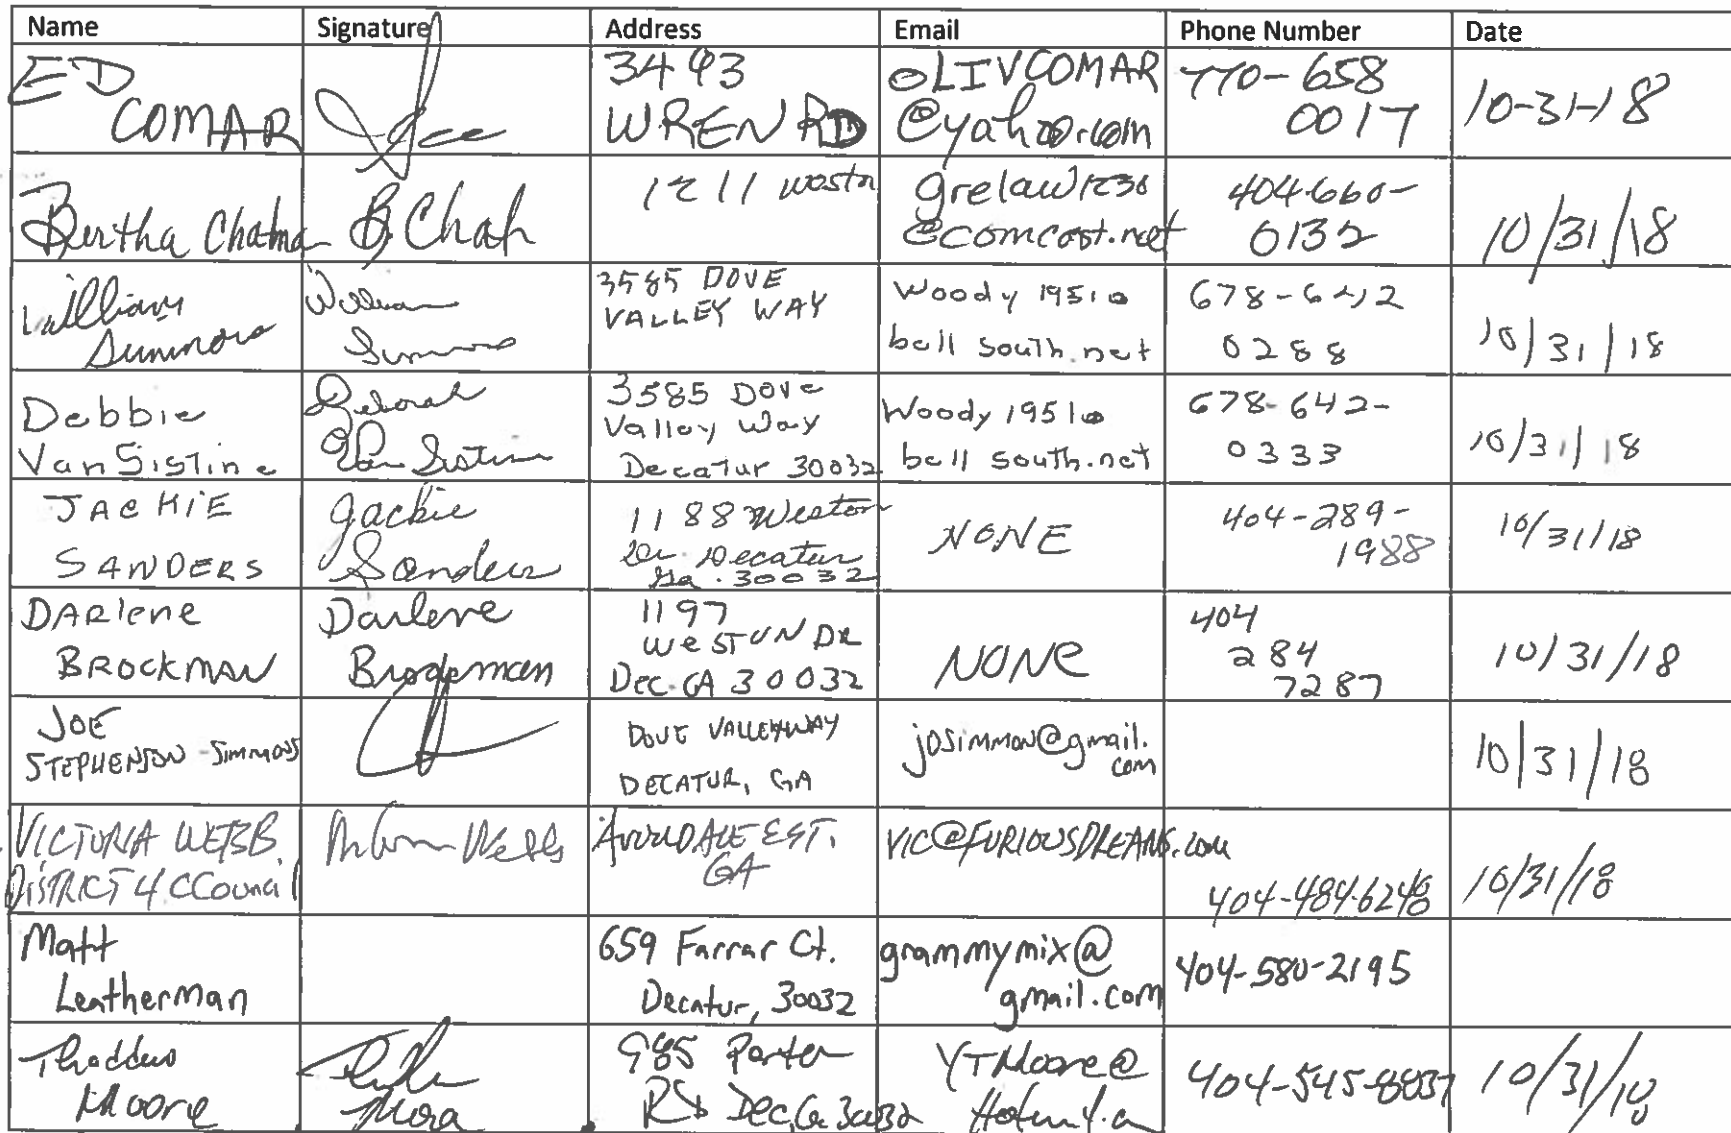 Name Signature Address Email Phone Number Date
ED
COMAR
3493
WREN RD
OLIVCOMAR
@yahoo.com
770-658
0017
10-31-18
Bertha Chatman
B. Chat
1211 Weston
grelaw1230
@comcast.net
404-660-
0132
10/31/18
William
Simmons
William
Simmons
3585 DOVE
VALLEY WAY
Woody 1951@
bell south.net
678-642
0288
10/31/18
Debbie
VanSistine
Deborah
Van Sistine
3585 Dove
Valley Way
Decatur 30032
Woody 1951@
bell south.net
678-642-
0333
10/31/18
JACKIE
SANDERS
Jackie
Sanders
1188 Weston
Dr. Decatur
Ga. 30032
NONE
404-289-
1988
10/31/18
DARlene
BROCKMAN
Darlene
Brockman
1197
WeSTON DR
Dec. GA 30032
NONe
404
284
7287
10/31/18
JOE
STEPHENSON-SIMMONS
DOVE VALLEYWAY
DECATUR, GA
josimmon@gmail.
com
10/31/18
VICTORIA WEBB
DISTRICT 4 CCouncil
Webb
AVONDALE EST.
GA
VIC@FURIOUSDREAMS.com
404-484-6248
10/31/18
Matt
Leatherman
659 Farrar Ct.
Decatur, 30032
grammymix@
gmail.com
404-580-2195
Thaddeus
Moore
985 Porter
Rd Dec, Ga 30032
YTMoore@
404-545-8837
10/31/18